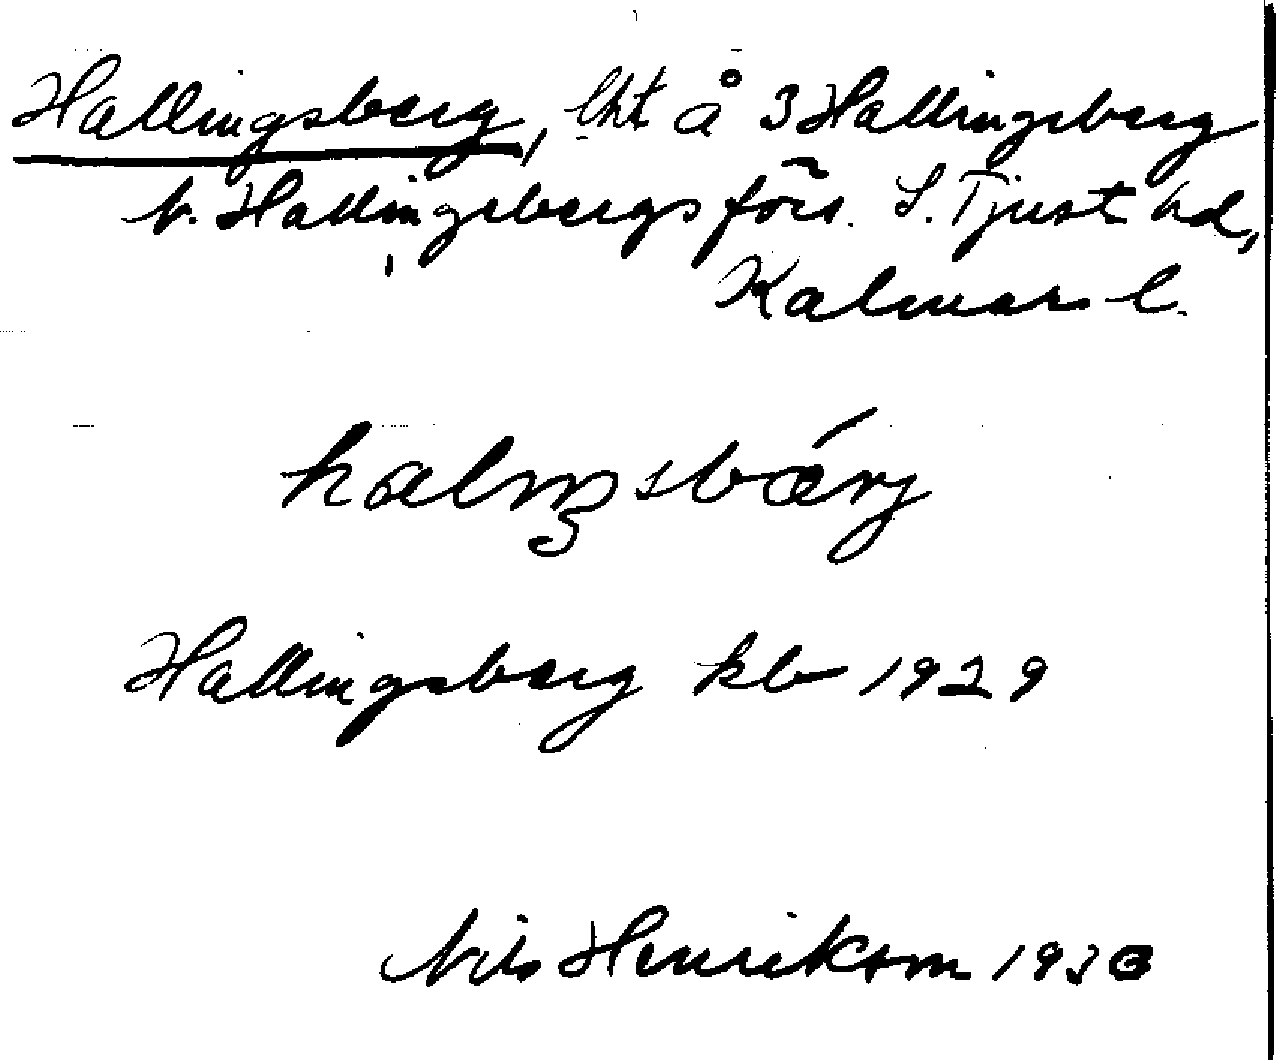 Hallingsberg, lht å 3 Hallingeberg
N. Hallingebergs förs. S. Tjust hd,
Kalmar l.
Hallingsberg kb 1929
Nils Henrikson